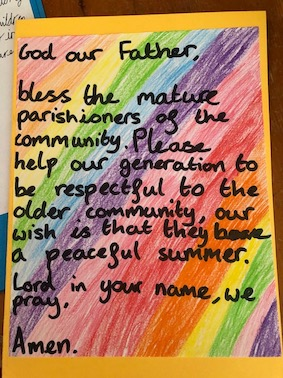 God our Father,
bless the mature
parishioners of the
community. Please
help our generation to
be respectful to the
older community, our
wish is that they have
a peaceful summer.
Lord in your name, we
pray,
Amen.